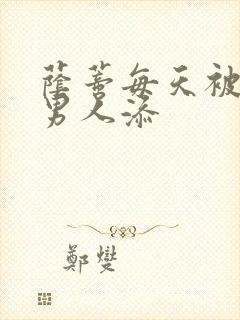 蔭蒂每天被
男人添
鄭燮